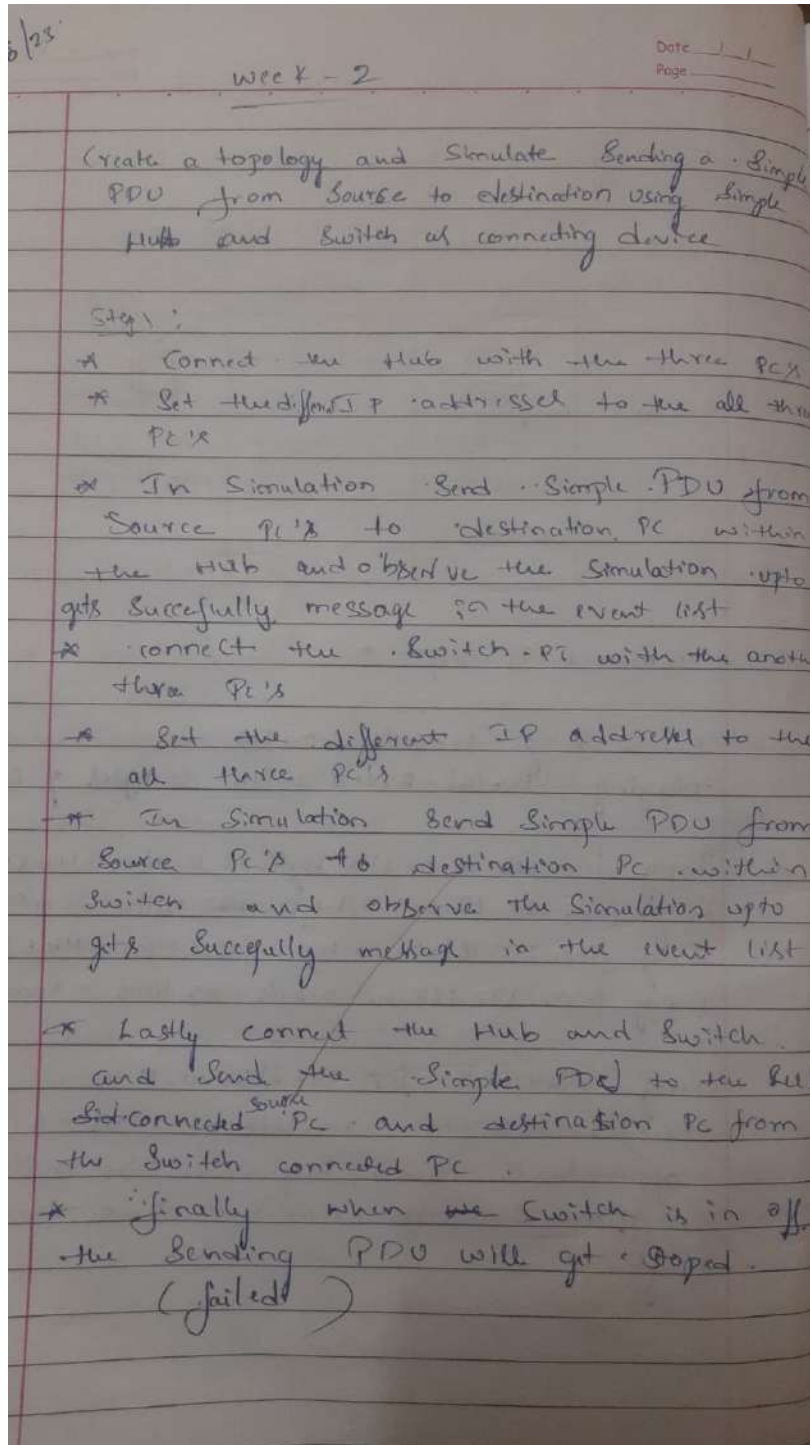 /23
Date
Page
Week - 2
Create a topology and Simulate Sending a Simple
PDU from Source to destination using Simple
Hub and Switch as connecting device
Step 1 :
* Connect the Hub with the three PC's
* Set the different IP addresses to the all thre
PC's
* In Simulation Send Simple PDU from
Source PC's to destination PC within
the Hub and observe the Simulation upto
gets Succefully message in the event list
* connect the Switch-PT with the anoth
three PC's
* Set the different IP addresses to the
all three PC's
* In Simulation Send Simple PDU from
Source PC's to destination PC within
Switch and observe the Simulation upto
gets Succefully message in the event list
* Lastly connect the Hub and Switch
and Send the Simple PDU to the
connected source PC and destination PC from
the Switch connected PC.
* finally when Switch is in off
the Sending PDU will get Stoped.
(failed)